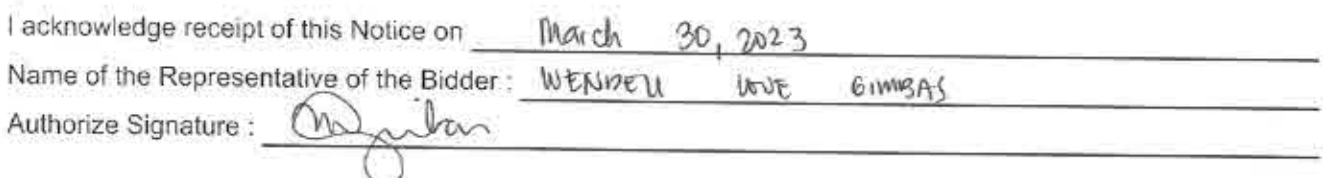 I acknowledge receipt of this Notice on March 30, 2023
Name of the Representative of the Bidder : WENDELL LOVE GIMBAS
Authorize Signature :